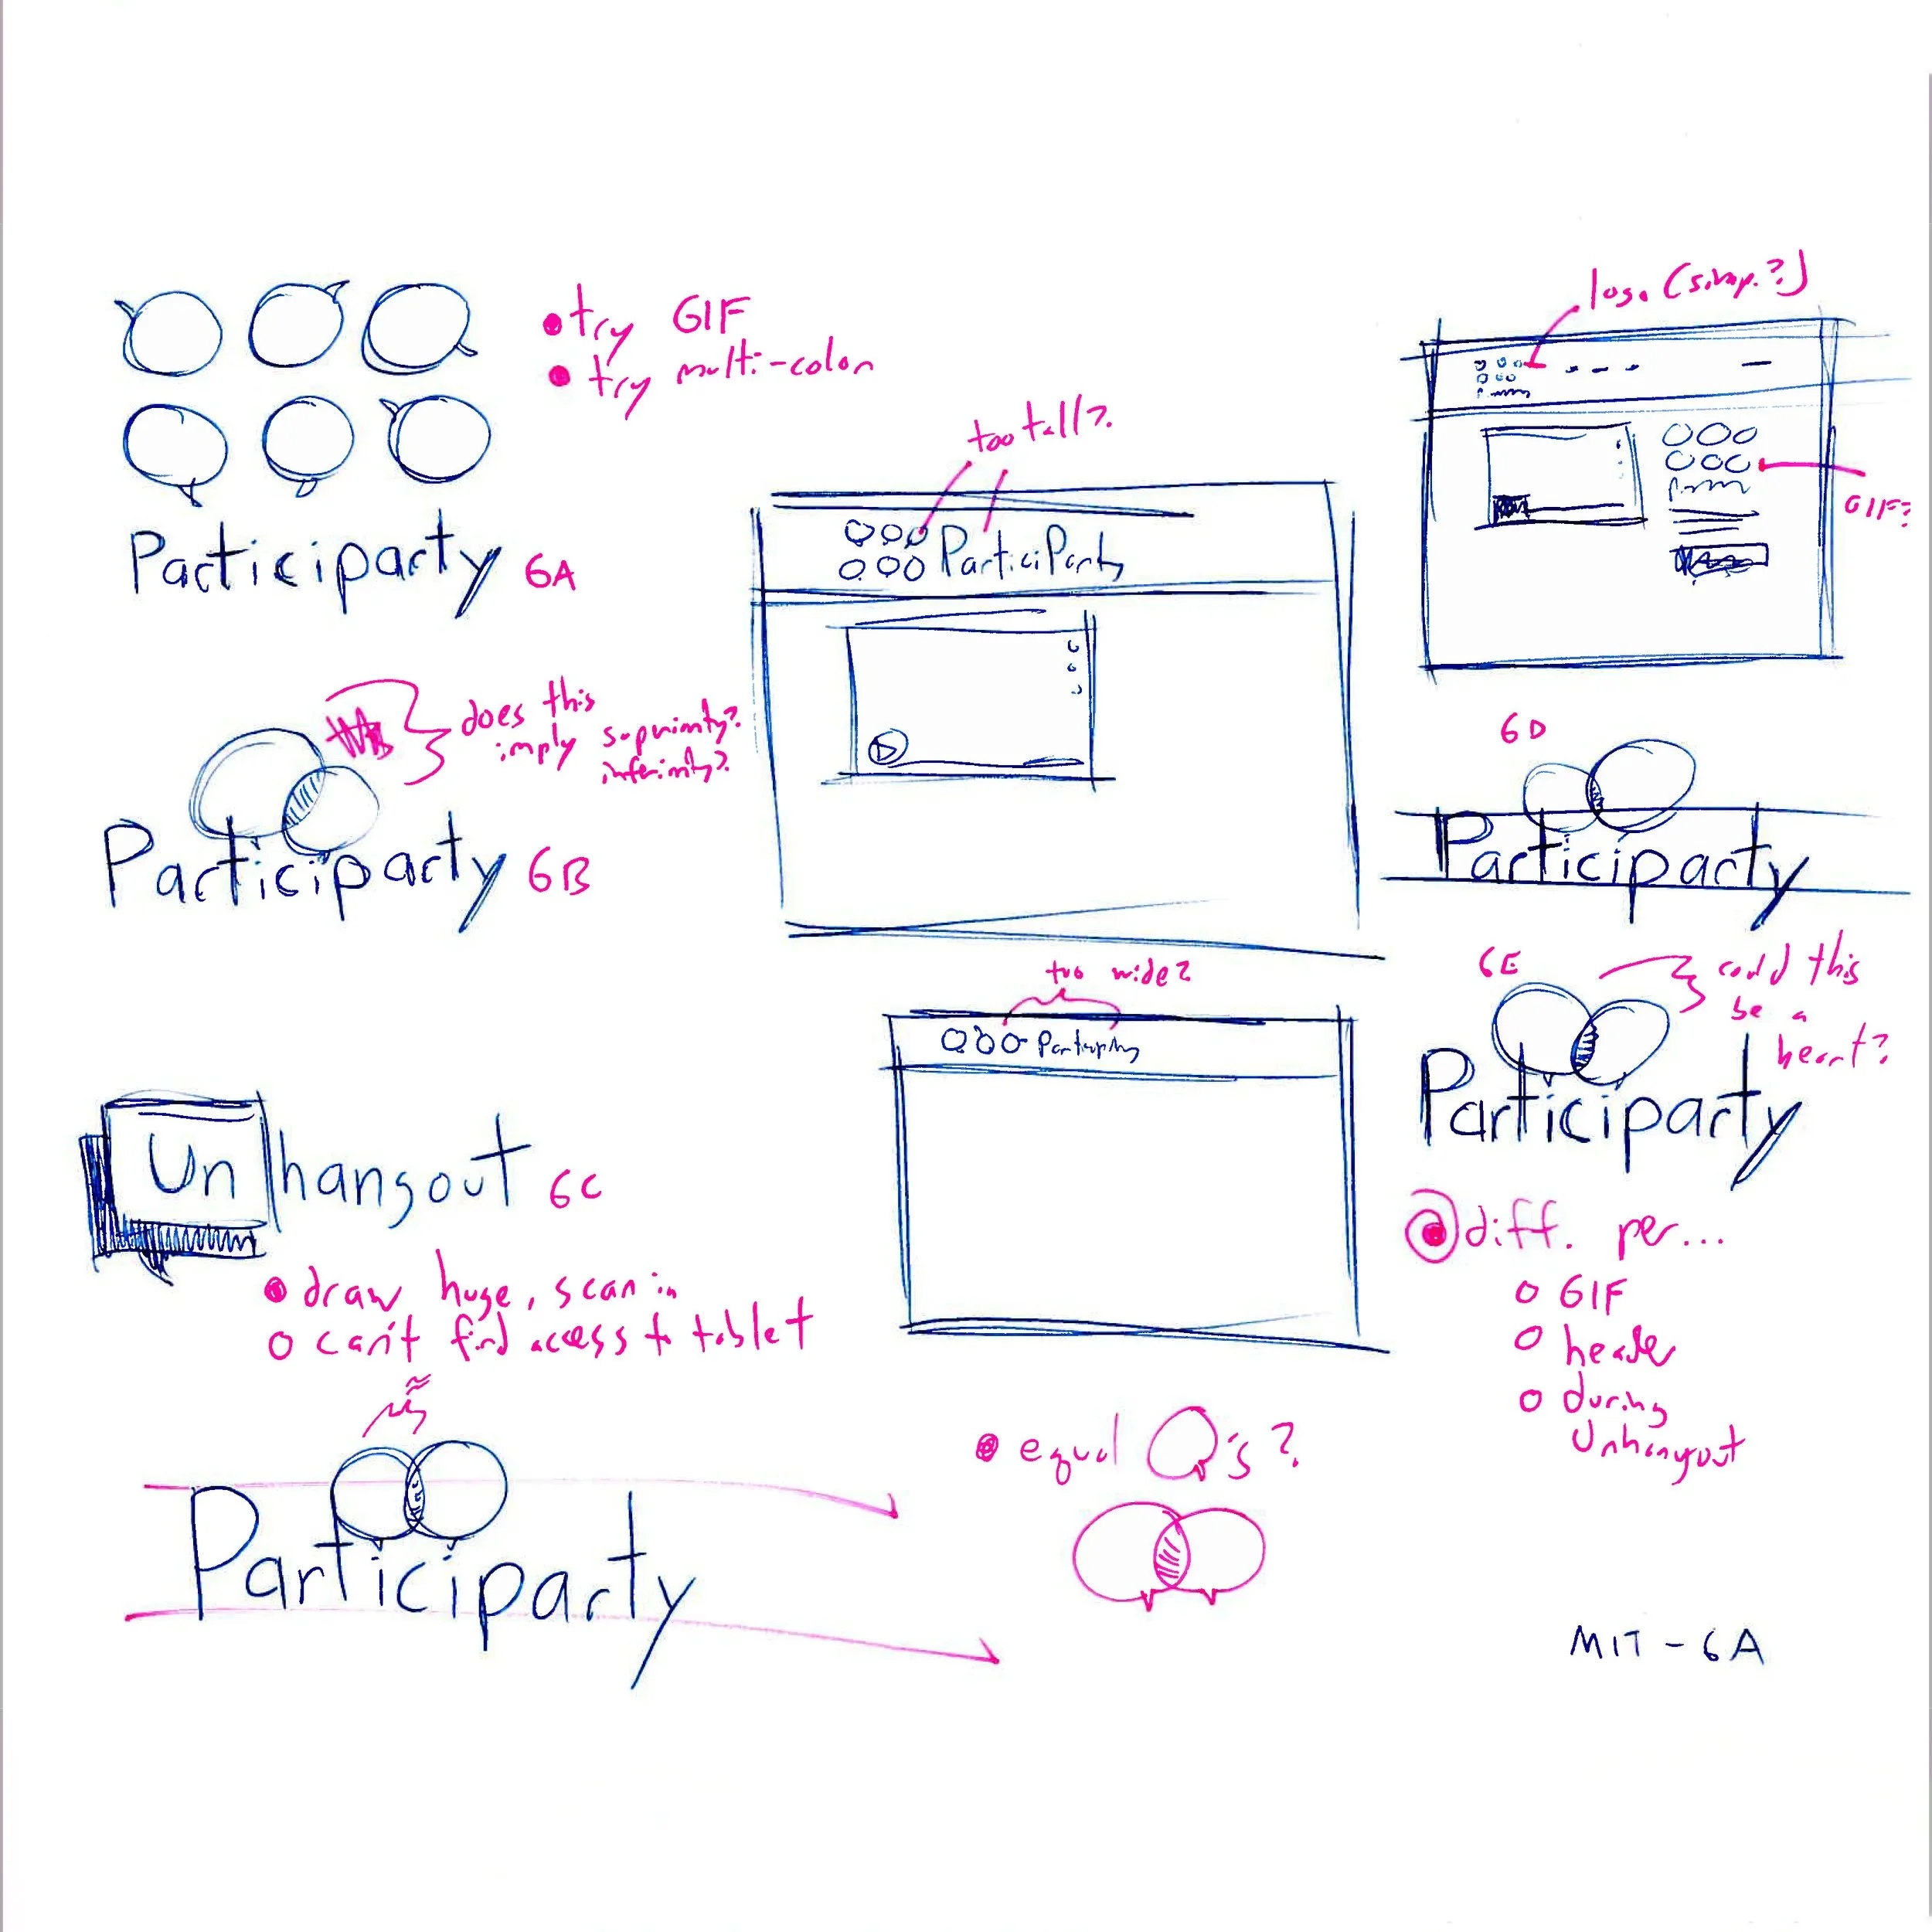 • try GIF
• try multi-color
Participarty 6A
does this
imply superiority?
inferiority?
Participarty 6B
Unhangout 6C
• draw huge, scan in
o can't find access to tablet
Participarty
too tall?
Participarty
too wide?
Participarty
• equal 's?
logo (simp.?)
GIF?
6D
Participarty
6E
could this
be a
heart?
Participarty
diff. per...
o GIF
o header
o during
Unhangout
MIT-6A